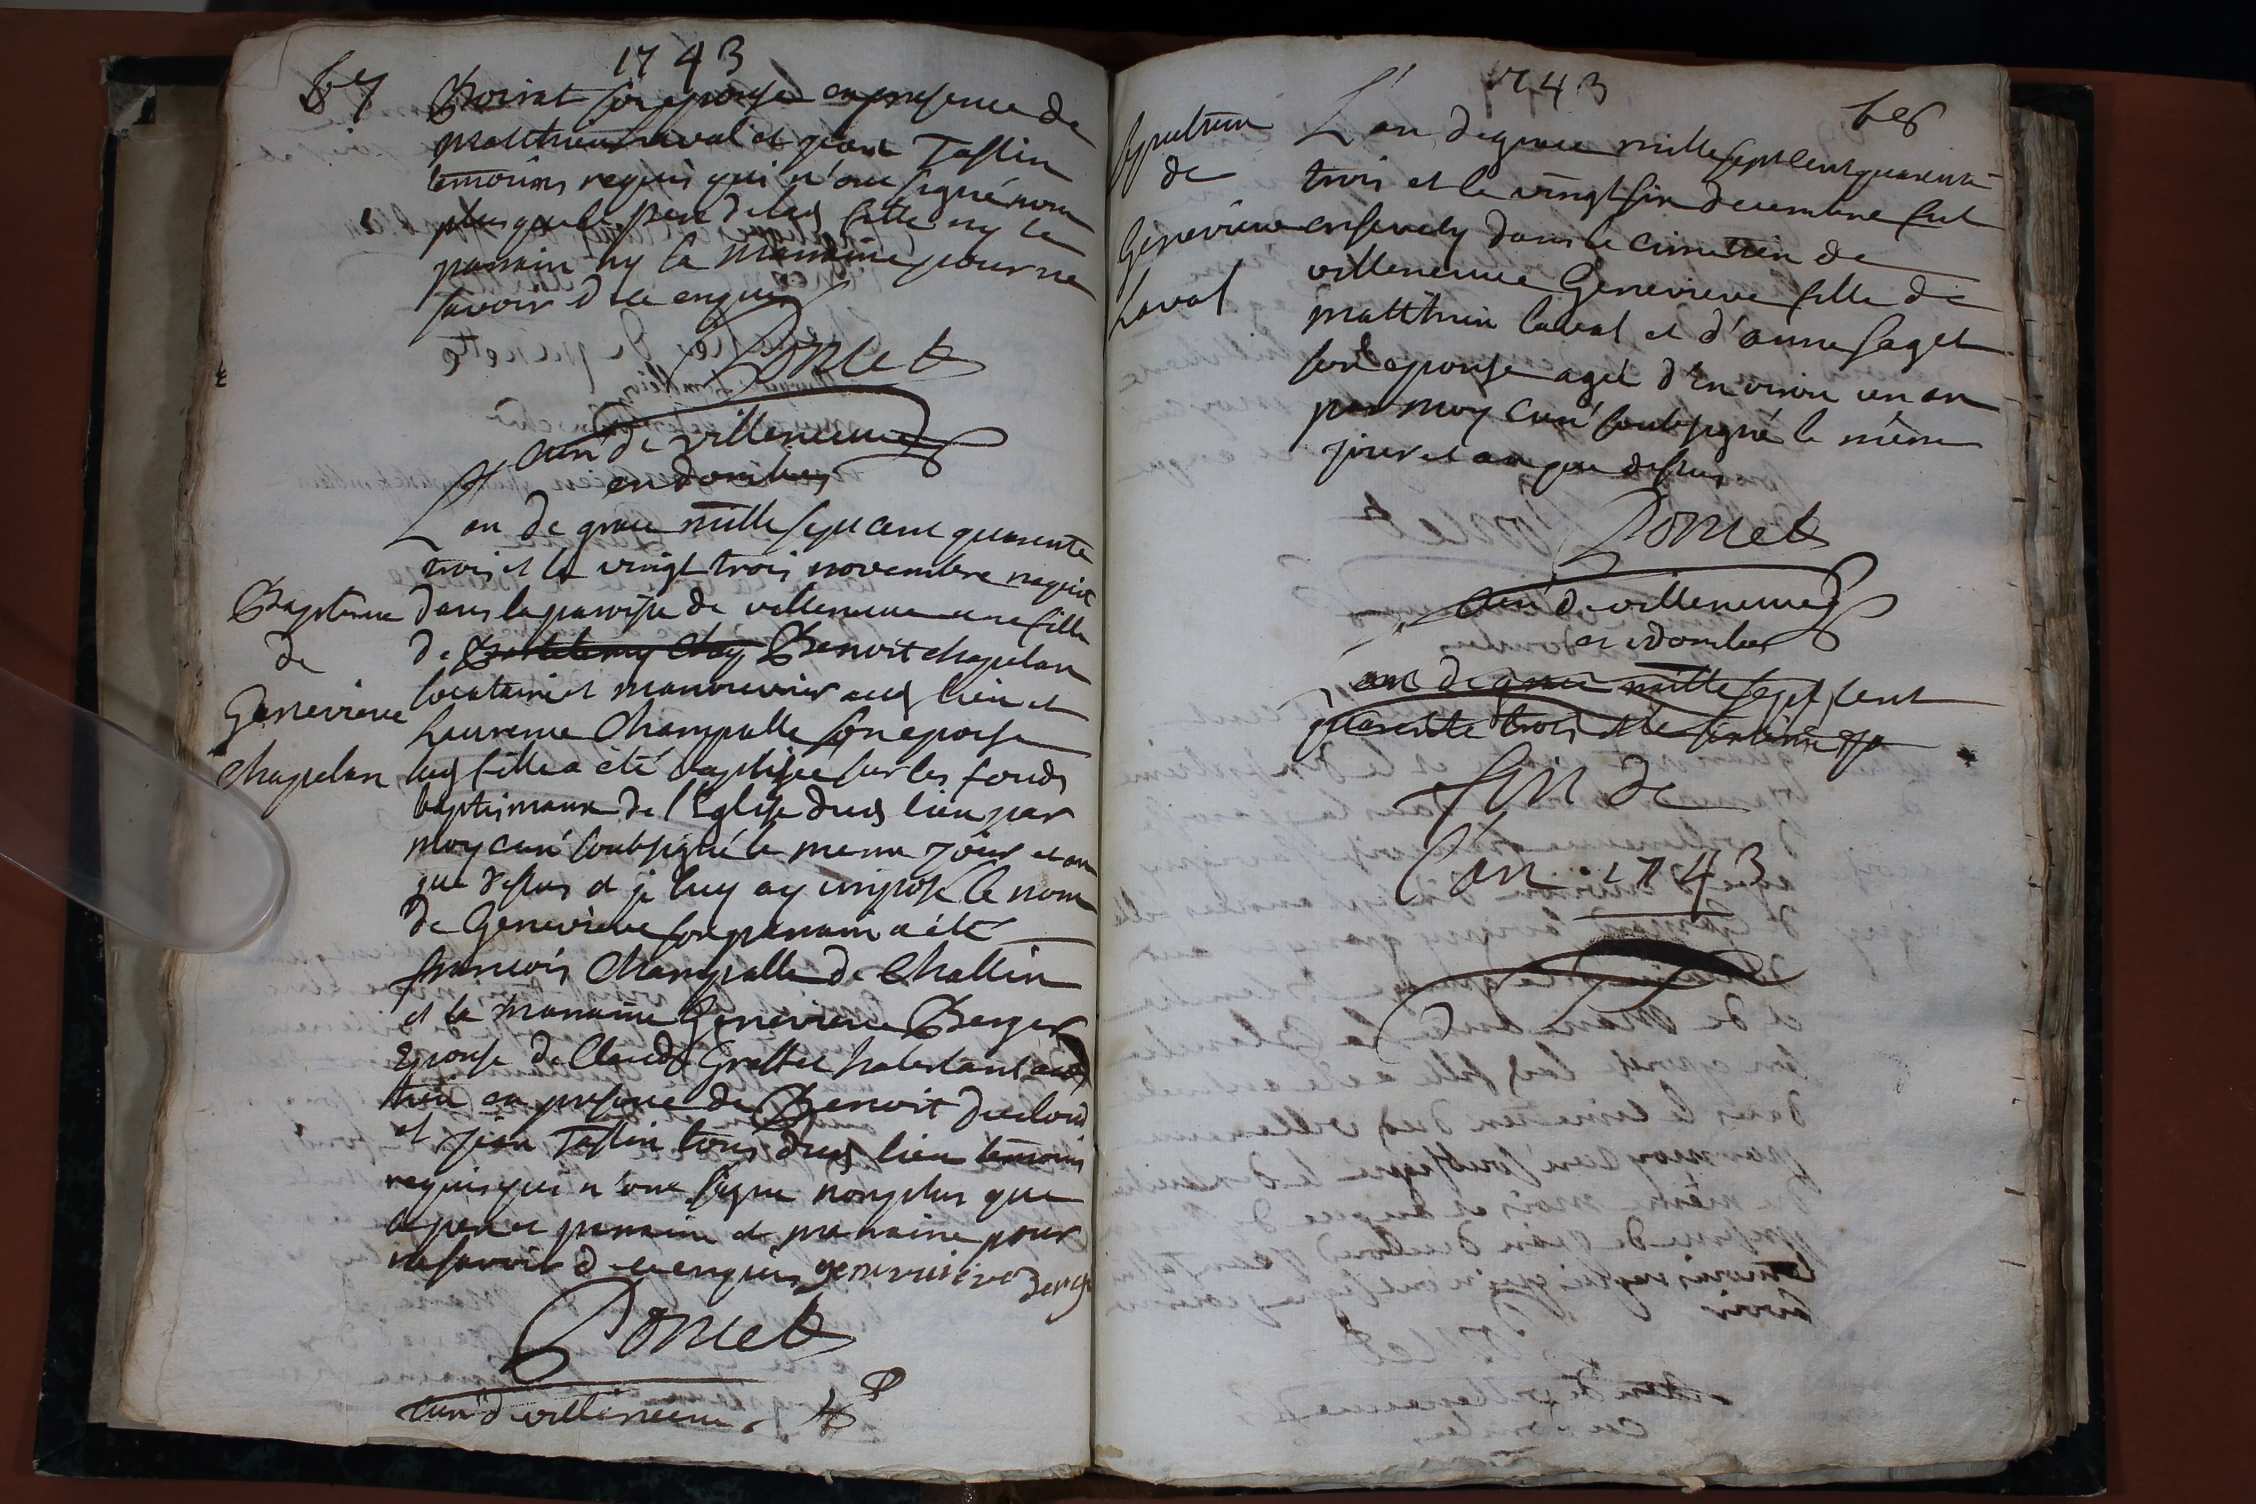 1743
67
son epouse en presence de
Matthieu Laval et jean Taslin
temoins requis qui n'ont signé non
plus que le pere de lad fille ny le
parrain ny la Marraine pour ne
savoir de ce enquis
Poncet
curé de villeneuve
en dombes
L'an de grace mille sept cent quarente
trois et le vingt trois novembre naquit
Baptême
de
Genevieve
chapelan
dans la paroisse de villeneuve une fille
de Benoit chapelan
locataire et manouvrier aud lieu et
Laurence Champalle son epouse
lad fille a été baptisée sur les fonds
baptismaux de l'Eglise dud lieu par
moy curé soubsigné le meme jour et an
que dessus et je luy ay imposé le nom
de Genevieve son parrain a été
francois Champalle de Challin
et la marraine Genevieve Berger
Epouse de Claude habitant aud
lieu en presence de Benoit Ducloud
et jean Taslin tous dud lieu temoins
requis qui n'ont signé non plus que
le pere et parrain et marraine pour
ne savoir de ce enquis genevieve Berge
Poncet
curé d villeneuve
1743
68
Sepulture
de
Genevieve
Laval
L'an de grace mille sept cent quarente
trois et le vingt six decembre fut
ensevely dans le cimetière de
villeneuve Genevieve fille de
Matthieu laval et d'anne saget
son epouse agée d'environ un an
par moy curé soubsigné le même
jour et an que dessus
Poncet
curé d villeneuve
en dombes
an de grace mille sept cent
quarente trois
fin de
l'an 1743